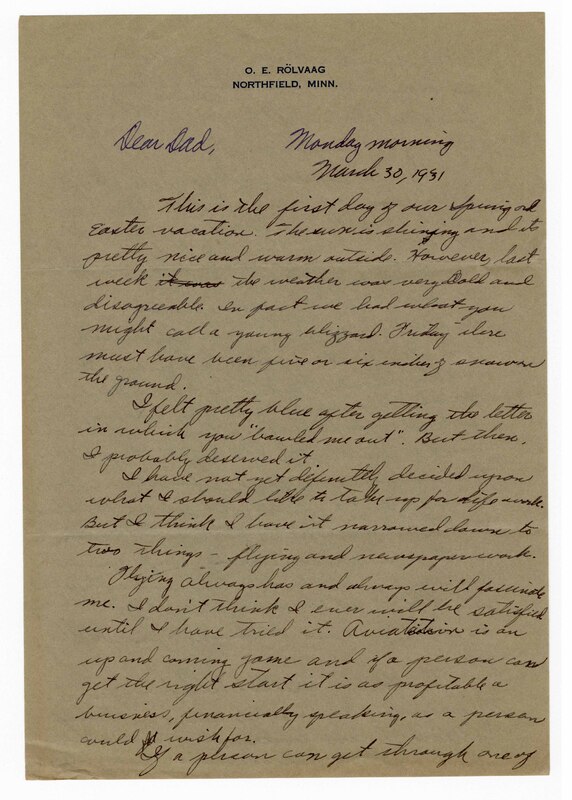 O. E. RÖLVAAG
NORTHFIELD, MINN.
Dear Dad, Monday morning
March 30, 1931
This is the first day of our Spring and
Easter vacation. The sun is shining and its
pretty nice and warm outside. However, last
week it was the weather was very cold and
disagreeable. In fact we had what you
might call a young blizzard. Friday there
must have been five or six inches of snow on
the ground.
I felt pretty blue after getting the letter
in which you "bawled me out". But then,
I probably deserved it.
I have not yet definitely decided upon
what I should like to take up for life work.
But I think I have it narrowed down to
two things - flying and newspaper work.
Flying always has and always will fascinate
me. I don't think I ever will be satisfied
until I have tried it. Aviation is an
up and coming game and if a person can
get the right start it is as profitable a
business, financially speaking, as a person
could wish for.
If a person can get through one of